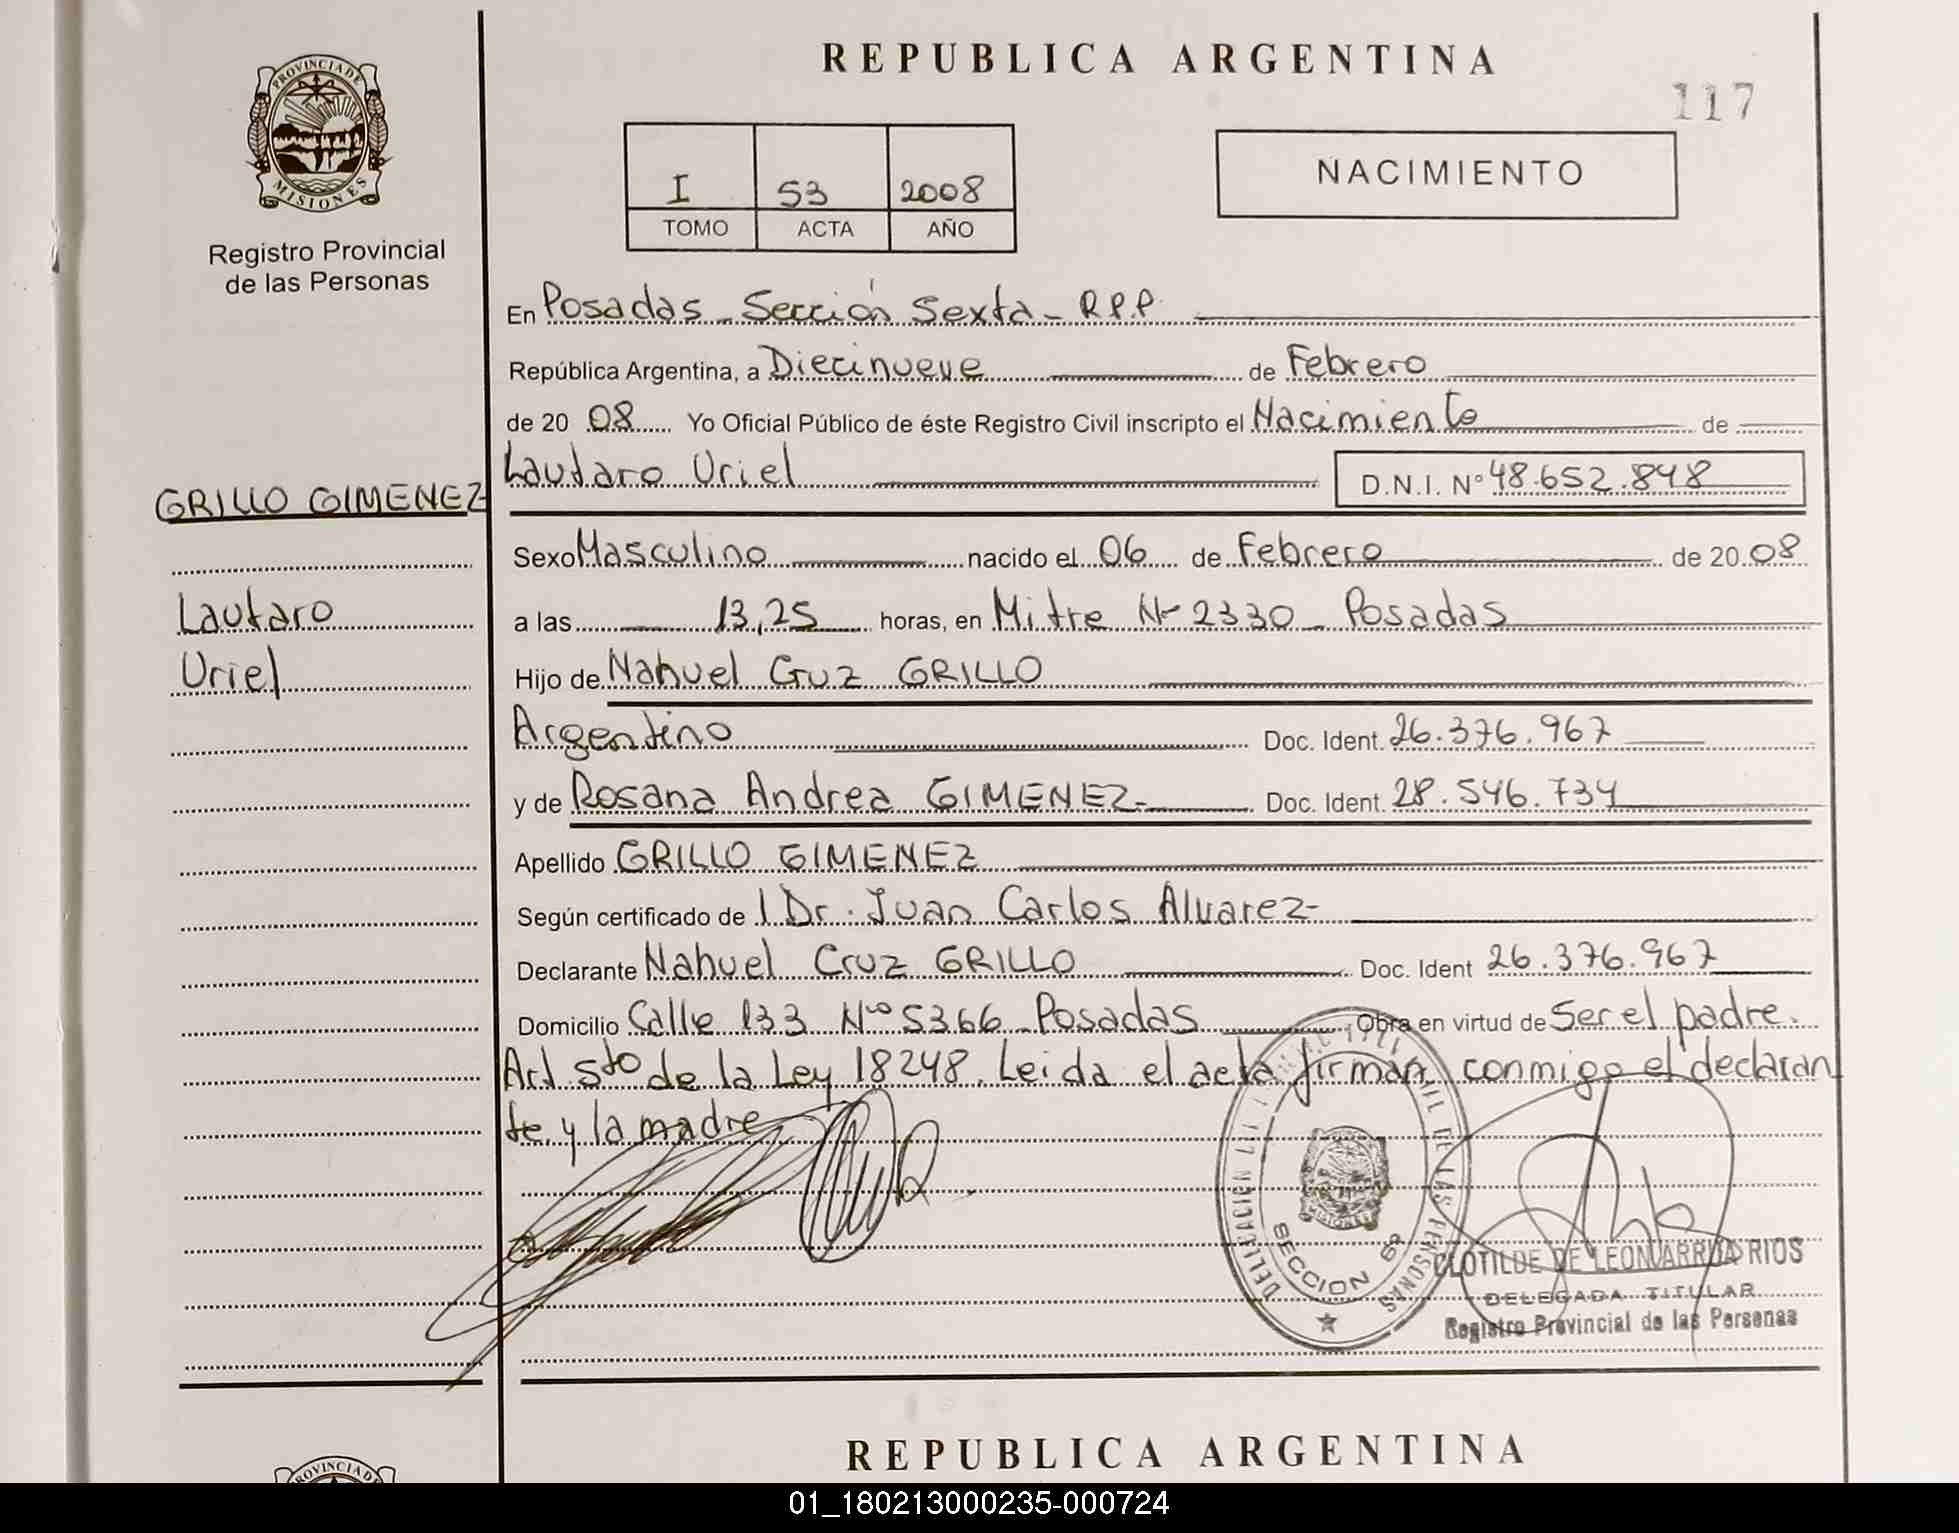 REPUBLICA ARGENTINA
117
PROVINCIA DE
MISIONES
Registro Provincial
de las Personas
I 53 2008
TOMO ACTA AÑO
NACIMIENTO
En Posadas - Sección Sexta - R.P.P.
República Argentina, a Diecinueve de Febrero
de 20 08 Yo Oficial Público de éste Registro Civil inscripto el Nacimiento de
Lautaro Uriel D.N.I. Nº 48.652.848
GRILLO GIMENEZ
Sexo Masculino nacido el 06 de Febrero de 20 08
Lautaro
a las 13,25 horas, en Mitre Nº 2330 - Posadas
Uriel
Hijo de Nahuel Cruz GRILLO
Argentino Doc. Ident. 26.376.967
y de Rosana Andrea GIMENEZ - Doc. Ident. 28.546.734
Apellido GRILLO GIMENEZ
Según certificado de l Dr. Juan Carlos Alvarez -
Declarante Nahuel Cruz GRILLO Doc. Ident 26.376.967
Domicilio Calle 133 Nº 5366 - Posadas Obra en virtud de Ser el padre.
Art 5to de la Ley 18248. Leida el acta firman conmigo el declaran
te y la madre
DELEGACION CIVIL DE LAS PERSONAS
SECCION 6ª
MISIONES
CLOTILDE DE LEON ARRUA RIOS
DELEGADA TITULAR
Registro Provincial de las Personas
REPUBLICA ARGENTINA
PROVINCIA DE
01_180213000235-000724